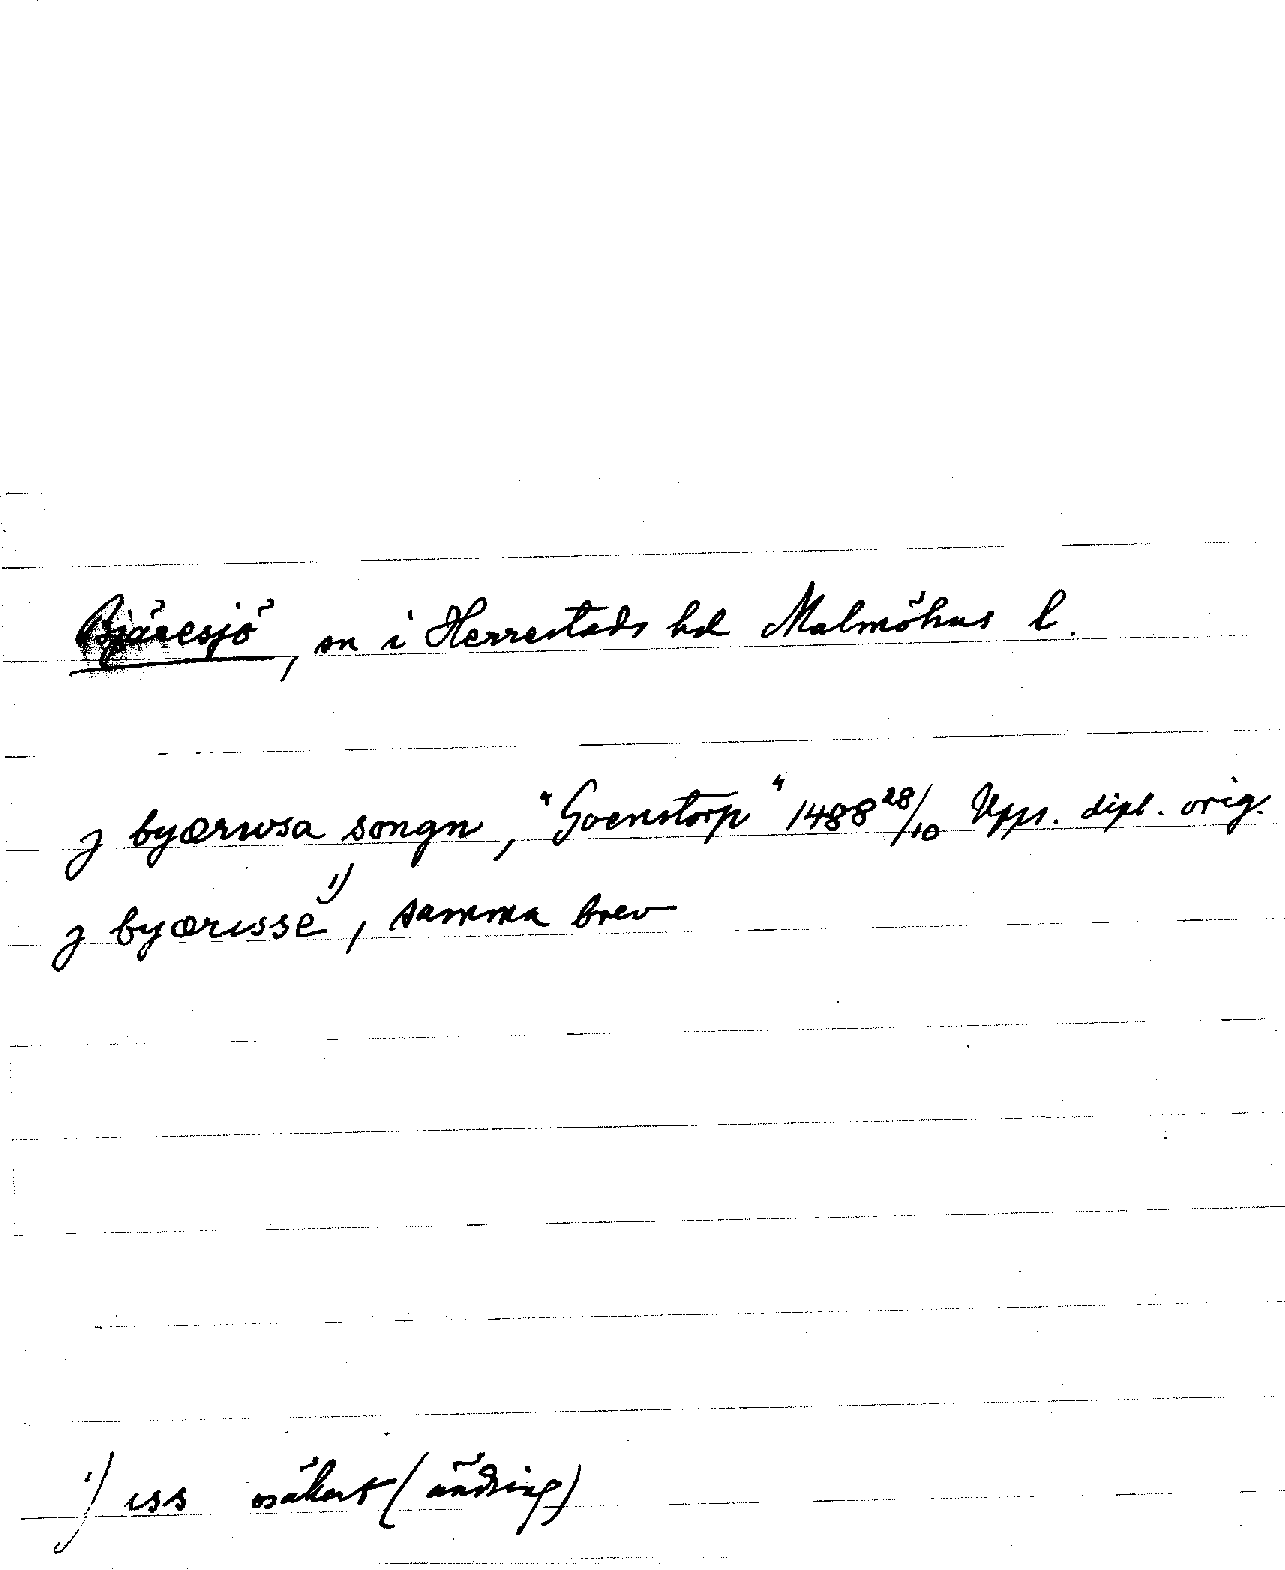 Bjäresjö, sn i Herrestads hd Malmöhus l.
j byærwsa songn, "Goenstorp" 1488 28/10 Upps. dipl. orig.
j byærisse 1), samma brev
1) iss osäkert (ändring)